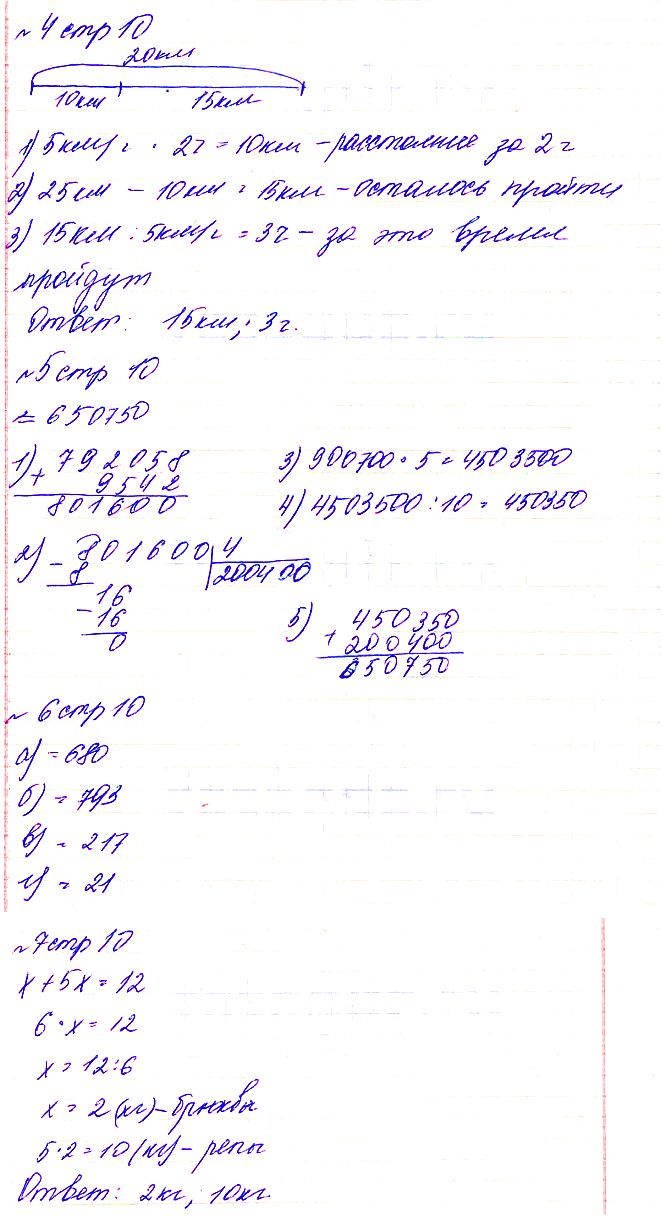 №4 стр 10
20км
10км 15км
1) 5км/ч · 2ч = 10км – расстояние за 2ч
2) 25км – 10км = 15км – осталось пройти
3) 15км : 5км/ч = 3ч – за это время
пройдут
Ответ: 15км; 3ч.
№5 стр 10
= 650750
1) + 792058
9542
801600
2) – 801600 4
8 200400
16
– 16
0
3) 900700 · 5 = 4503500
4) 4503500 : 10 = 450350
5) + 450350
200400
650750
№ 6 стр 10
а) = 680
б) = 793
в) = 217
г) = 21
№7 стр 10
x + 5x = 12
6 · x = 12
x = 12 : 6
x = 2 (кг) – брюквы
5 · 2 = 10 (кг) – репы
Ответ: 2кг, 10кг